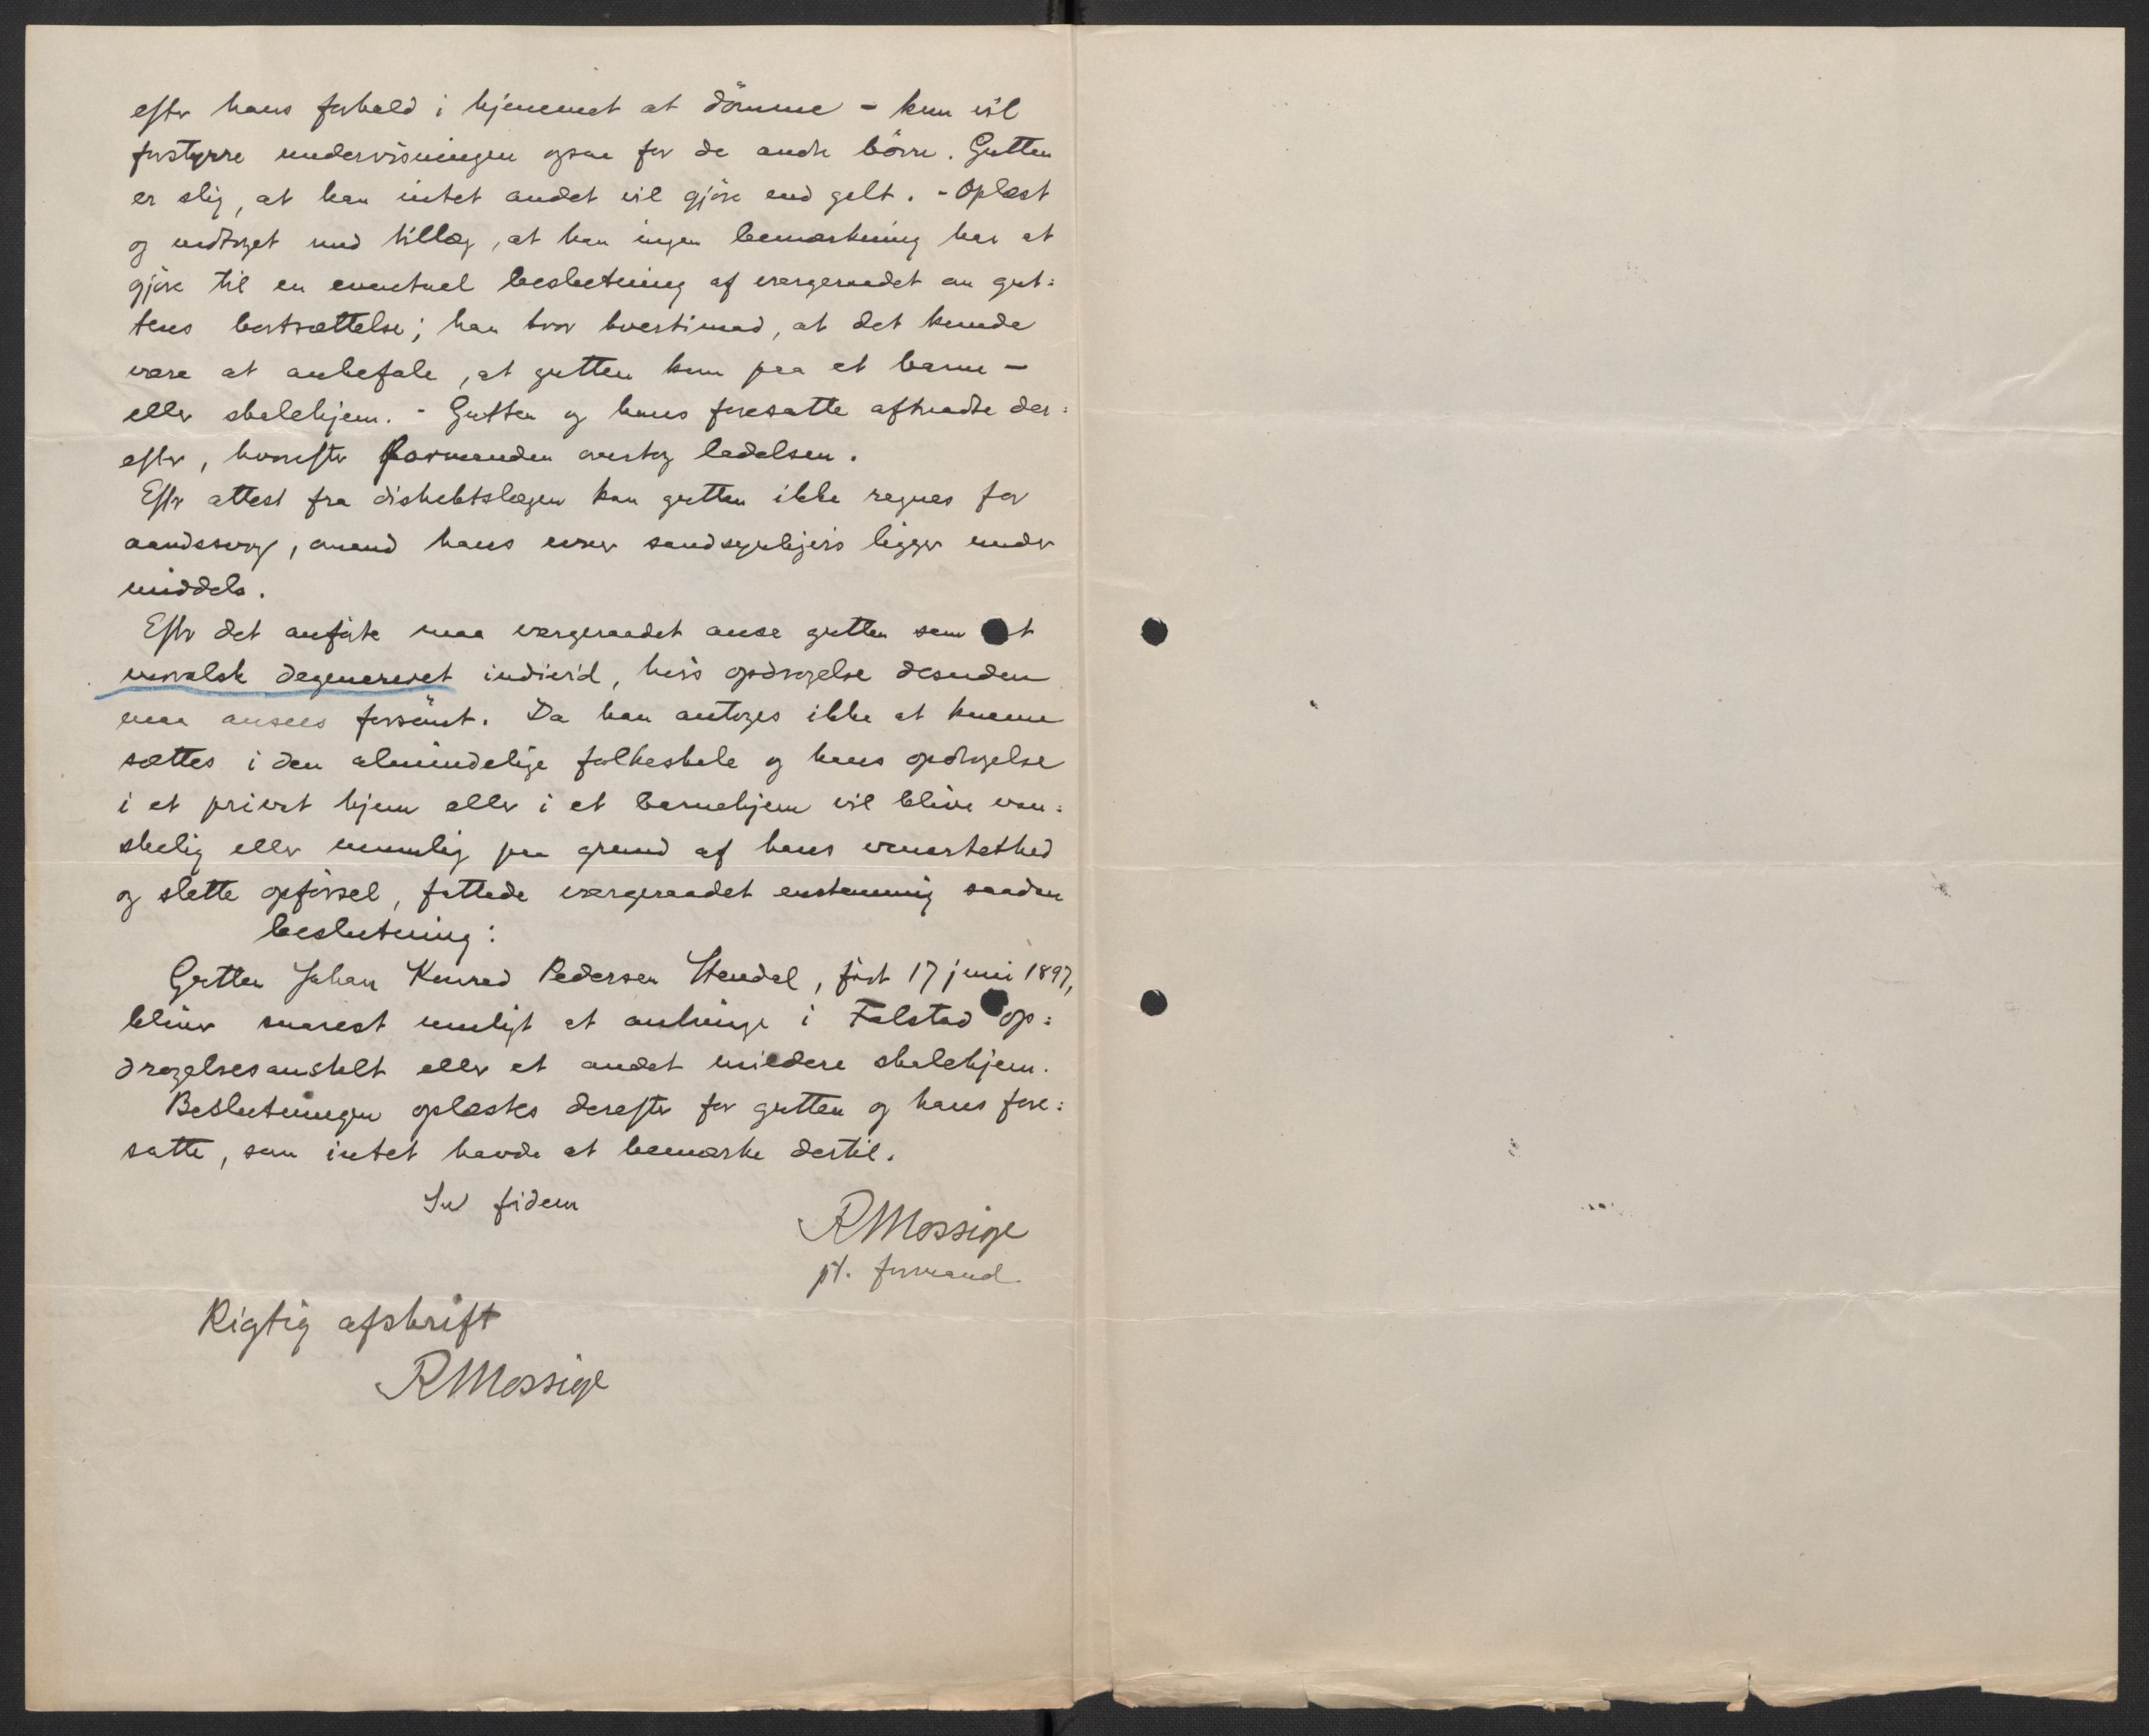 efter hans forhold i hjemmet at dömme - kun vil
forstyrre undervisningen ogsaa for de andre börn. Gutten
er slig, at han intet andet vil gjöre end galt. - Oplæst
og vedtaget med tillæg, at han ingen bemærkning har at
gjöre til en eventuel beslutning af vergeraadet om gut=
tens bortsættelse; han tror tvertimod, at det kunde
være at anbefale, at gutten kom paa et barne -
eller skolehjem. - Gutten og hans foresatte aftraadte der=
efter, hvorefter formanden overtog ledelsen.
Efter attest fra distriktslægen kan gutten ikke regnes for
aandssvag, omend hans evner sandsynligvis ligger under
middels.
Efter det anförte maa vergeraadet anse gutten som et
moralsk degenereret individ, hvis opdragelse desuden
maa ansees forsömt. Da han antages ikke at kunne
sættes i den almindelige folkeskole og hans opdragelse
i et privat hjem eller i et barnehjem vil blive van=
skelig eller umulig paa grund af hans vanartethed
og slette opförsel, fattede vergeraadet enstemmig saadan
beslutning:
Gutten Johan Konrad Pedersen Stendal, födt 17 juni 1897,
bliver snarest muligt at anbringe i Falstad op=
dragelsesanstalt eller et andet mildere skolehjem.
Beslutningen oplæstes derefter for gutten og hans fore=
satte, som intet havde at bemærke dertil.
In fidem
R Mossige
p.t. formand.
Rigtig afskrift
R Mossige